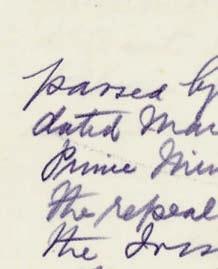 passed by
dated Mar
Prime Min
the repeal
the Iris